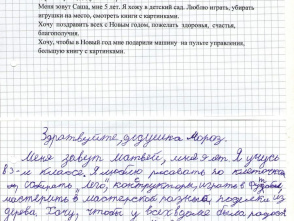 Меня зовут Саша, мне 5 лет. Я хожу в детский сад. Люблю играть, убирать
игрушки на место, смотреть книги с картинками.
Хочу поздравить всех с Новым годом, пожелать здоровья, счастья,
благополучия.
Хочу, чтобы в Новый год мне подарили машину на пульте управления,
большую книгу с картинками.
Здравствуйте, дедушка Мороз.
Меня зовут Матвей, мне 9 лет. Я учусь
в 3-м классе, Я люблю рисовать по клеточка
м, собирать "Лего", конструкторы, играть в
мастерить в мастерской разные поделки из
дерева. Хочу, чтобы у всех